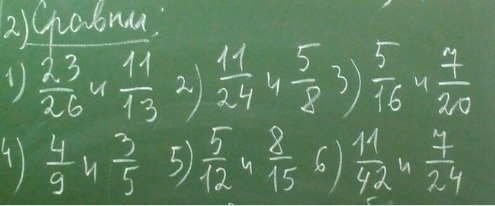 2) Сравни:
1) 23/26 и 11/13 2) 11/24 и 5/8 3) 5/16 и 7/20
4) 4/9 и 3/5 5) 5/12 и 8/15 6) 11/42 и 7/24